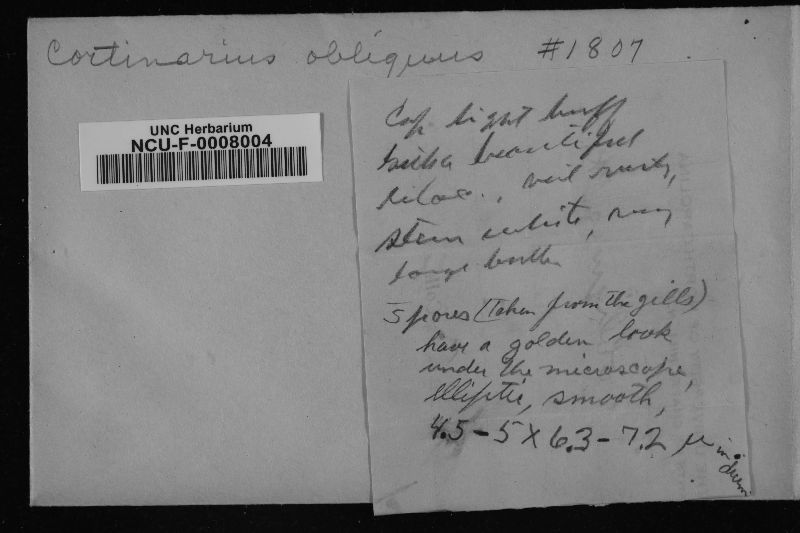 Cortinarius obliquus #1807
UNC Herbarium
NCU-F-0008004
Cap light buff
beautiful
lilac., veil
stem white, very
large bulb
Spores (taken from the gills)
have a golden look
under the microscope,
elliptic, smooth,
4.5-5 x 6.3-7.2 µ in
diam